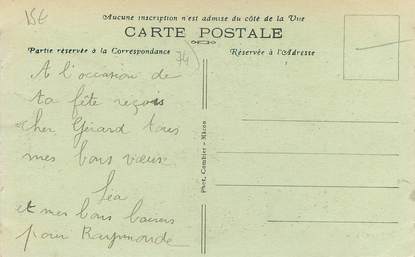 15€
Aucune inscription n'est admise du côté de la Vue
CARTE POSTALE
Partie réservée à la Correspondance
Réservée à l'Adresse
74
A l'occasion de
ta fête reçois
cher Gérard tous
mes bons vœux
Léa
et mes bons baisers
pour Raymonde
Phot. Combier - Mâcon